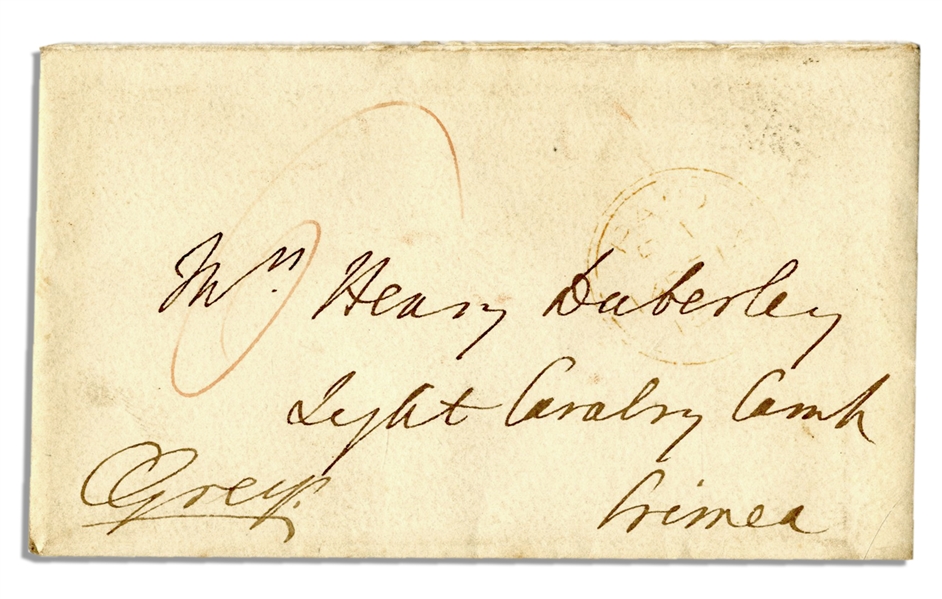 Mrs. Henry Duberley
Light Cavalry Camp
CGrey.
Crimea